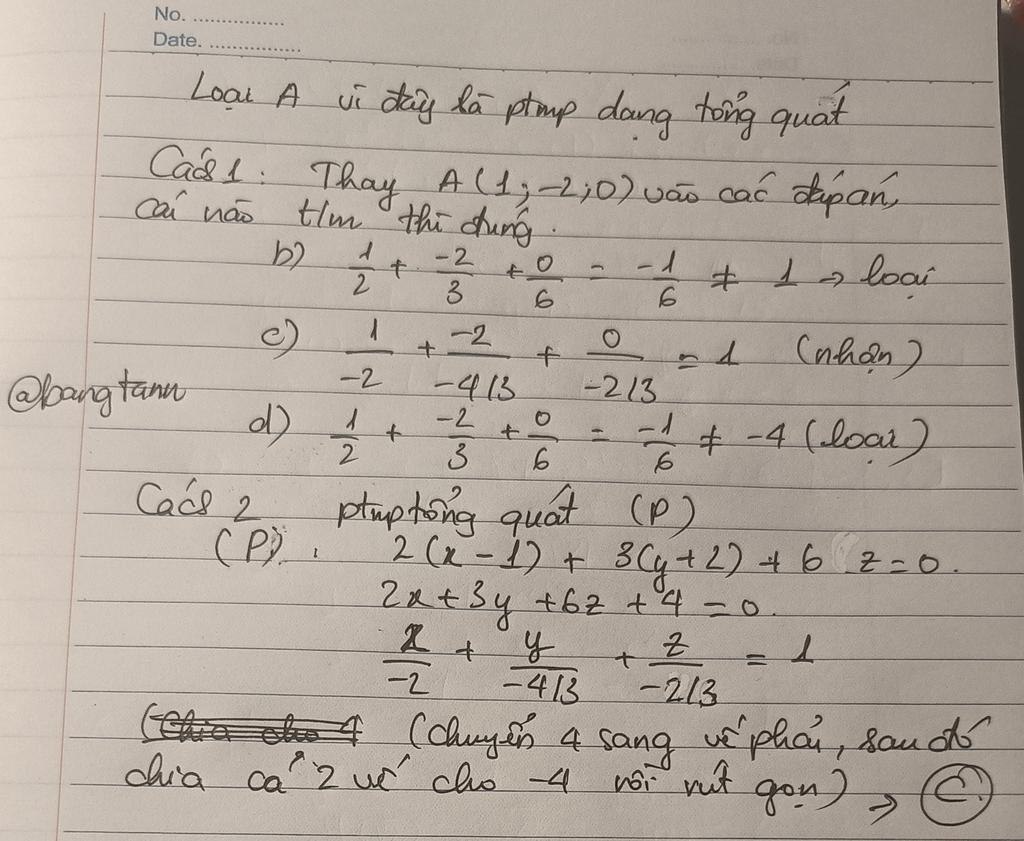 No. ................
Date. ................
Loại A vì đây là ptmp dạng tổng quát
Cách 1: Thay A(1;-2;0) vào các đáp án,
cái nào t/m thì đúng.
b) 1/2 + -2/3 + 0/6 = -1/6 ≠ 1 → loại
c) 1/-2 + -2/-4/3 + 0/-2/3 = 1 (nhận)
@bangtann
d) 1/2 + -2/3 + 0/6 = -1/6 ≠ -4 (loại)
Cách 2 ptmp tổng quát (P)
(P): 2(x-1) + 3(y+2) + 6 z = 0.
2x + 3y + 6z + 4 = 0.
x/-2 + y/-4/3 + z/-2/3 = 1
(Chia cho 4 (chuyển 4 sang vế phải, sau đó
chia cả 2 vế cho -4 rồi rút gọn) → C.